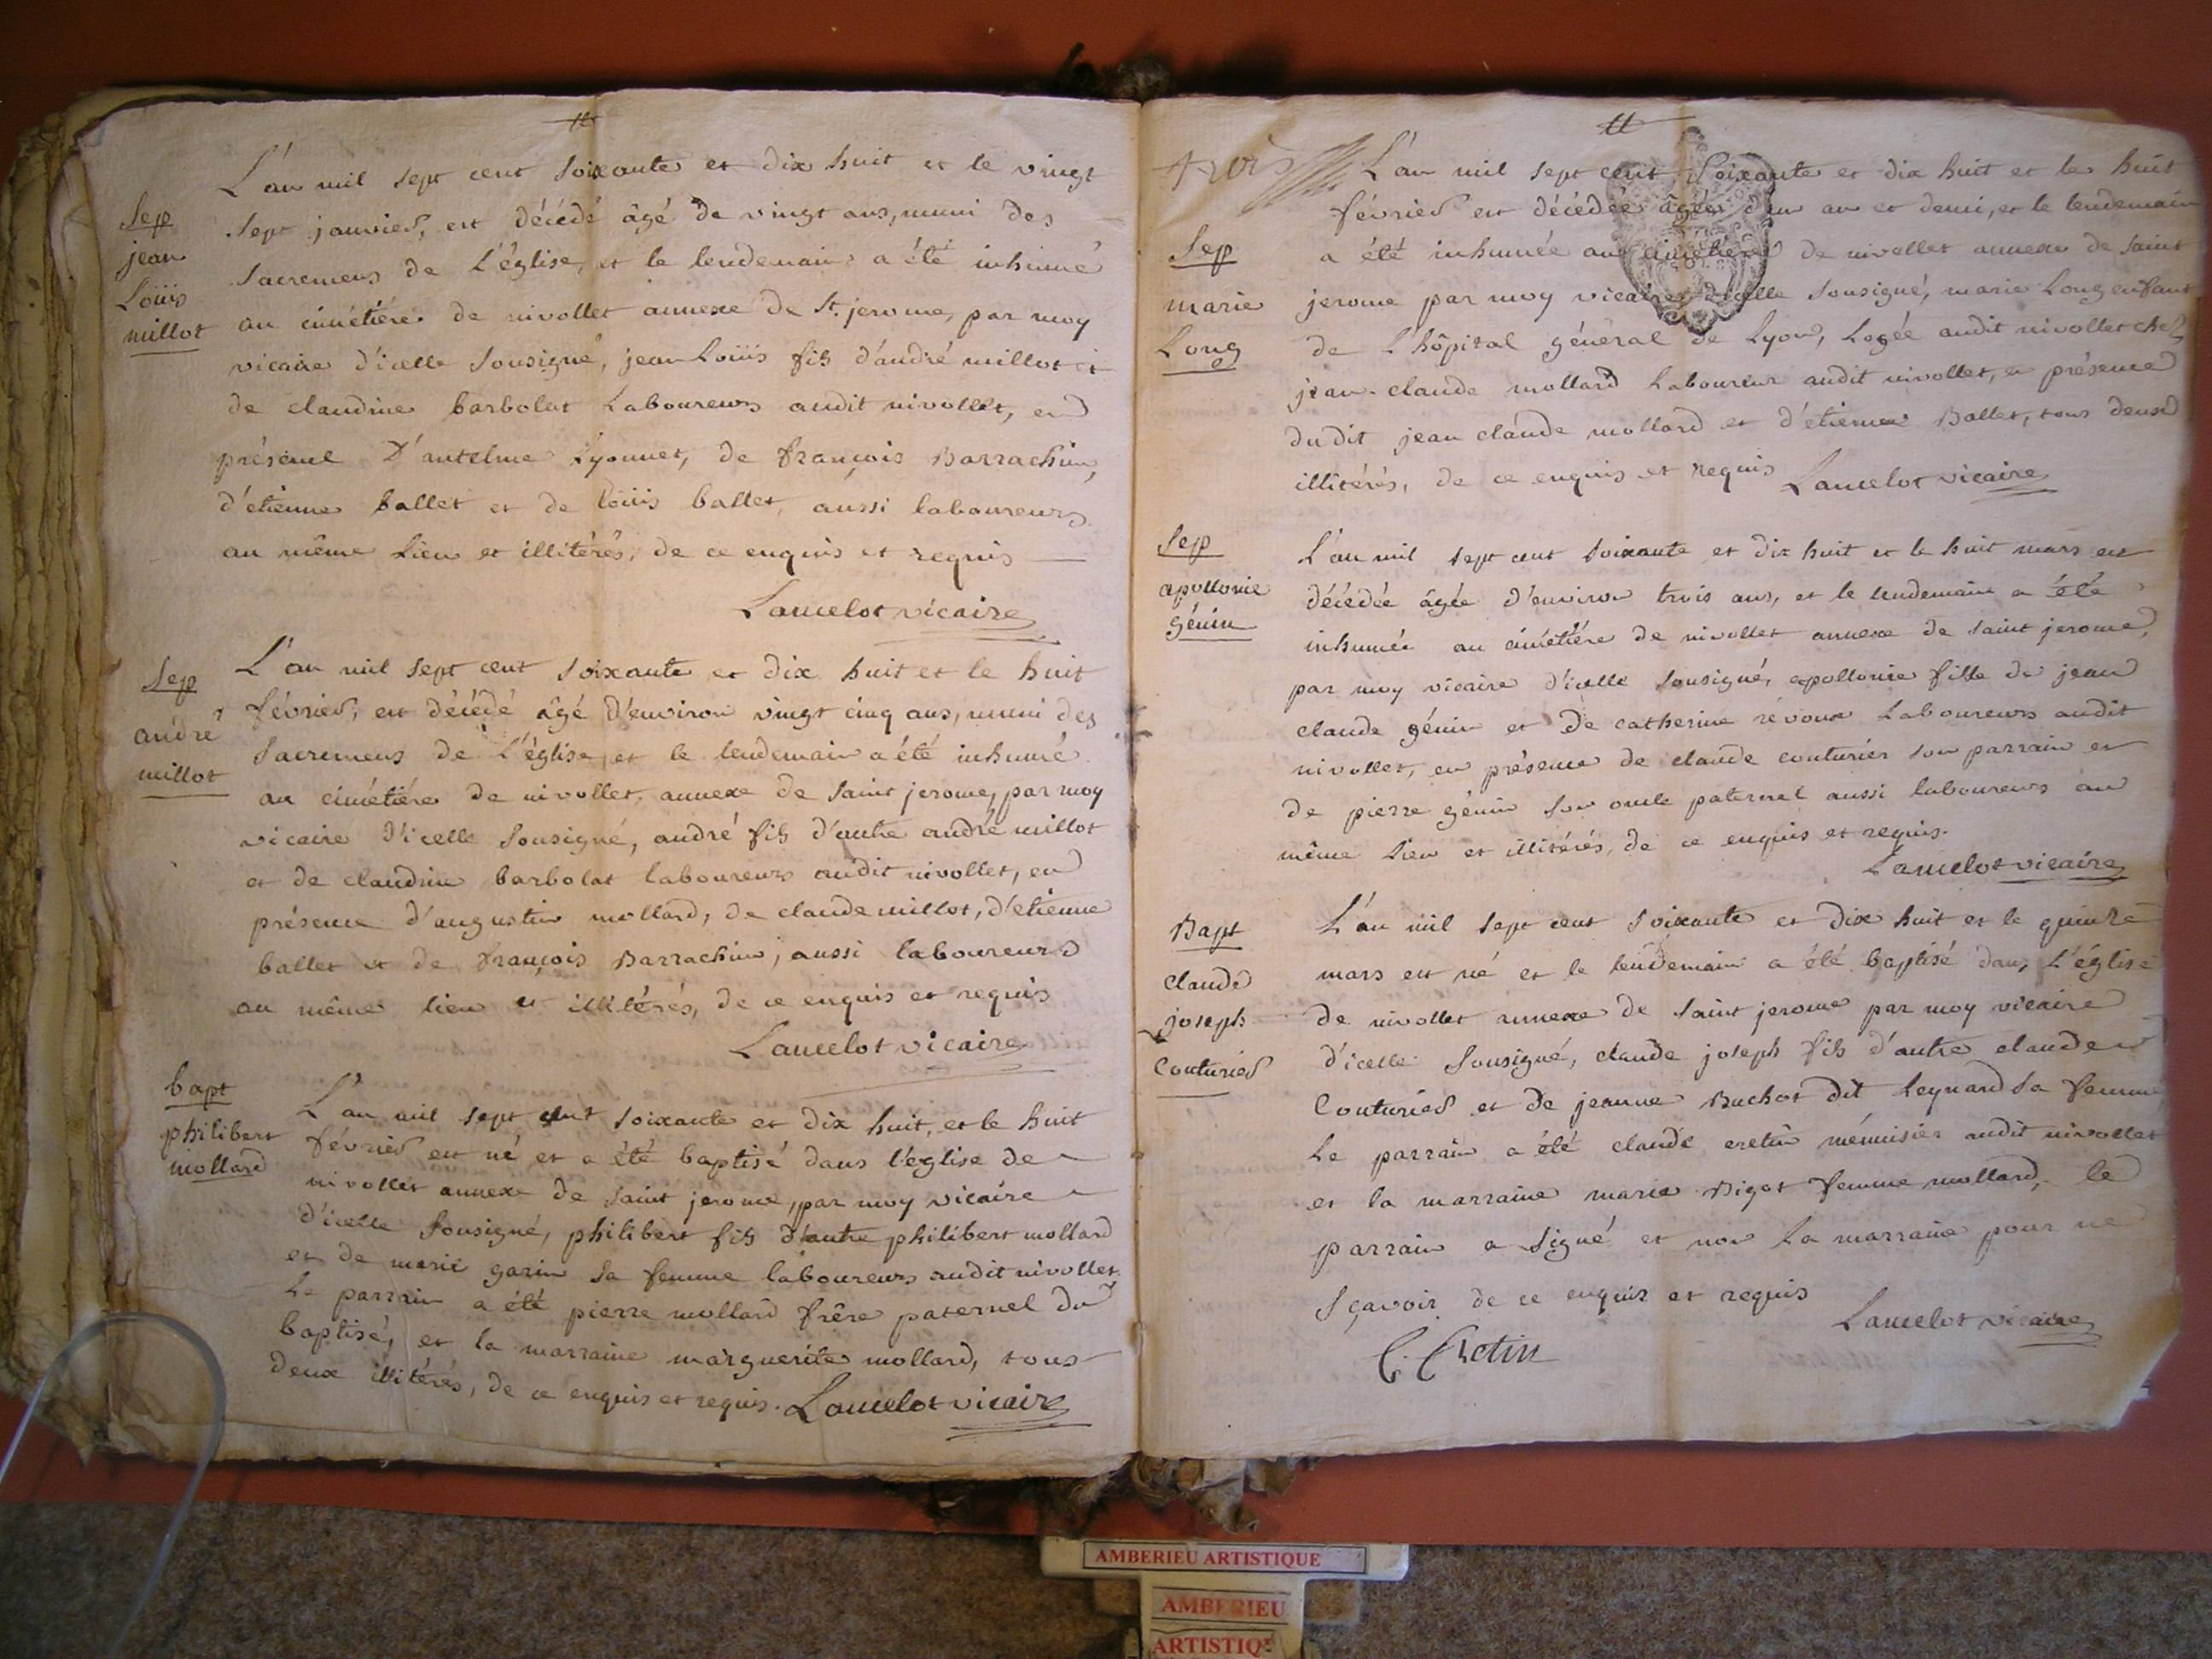 L'an mil sept cent soixante et dix huit et le vingt
Sep
jean
Loüis
millot
sept janvier, est décédé âgé de vingt ans, muni des
sacremens de L'église, et le lendemain a été inhumé
au cimétiére de nivollet annexe de St. jerome, par moy
vicaire d'icelle sousigné, jean Loüis fils d'andré millot et
de claudine barbolat Laboureurs audit nivollet, en
présence D'antelme Lyonnet, de françois Barrachin,
d'etienne ballet et de loüis ballet, aussi laboureurs
au même Lieu et illitérés, de ce enquis et requis
Lancelot vicaire
Sep
andré
millot
L'an mil sept cent soixante et dix huit et le huit
février, est décédé âgé d'environ vingt cinq ans, muni des
sacremens de L'église, et le lendemain a été inhumé
au cimétiére de nivollet, annexe de saint jerome, par moy
vicaire d'icelle sousigné, andré fils d'autre andré millot
et de claudine barbolat laboureurs audit nivollet, en
présence d'augustin mollard, de claude millot, d'etienne
ballet et de françois Barrachin, aussi laboureurs
au même lieu et illitérés, de ce enquis et requis
Lancelot vicaire
bapt
philibert
mollard
L'an mil sept cent soixante et dix huit, et le huit
février est né et a été baptisé dans l'église de
nivollet annexe de saint jerome, par moy vicaire
d'icelle sousigné, philibert fils d'autre philibert mollard
et de marie garin sa femme laboureurs audit nivollet.
Le parrain a été pierre mollard frêre paternel du
baptisé, et la marraine marguerite mollard, tous
deux illitérés, de ce enquis et requis. Lancelot vicaire
L'an mil sept cent soixante et dix huit et le huit
Sep
marie
Long
février est décédée âgée d'un an et demi, et le lendemain
a été inhumée au cimétiére de nivollet annexe de saint
jerome par moy vicaire d'icelle sousigné, marie Long enfant
de L'hôpital général de Lyon, Logée audit nivollet chez
jean-claude mollard Laboureur audit nivollet, en présence
dudit jean claude mollard et d'etienne Ballet, tous deux
illitérés, de ce enquis et requis Lancelot vicaire
Sep
apollonie
génin
L'an mil sept cent soixante et dix huit et le huit mars est
décédée âgée d'environ trois ans, et le lendemain a été
inhumée au cimétiére de nivollet annexe de saint jerome,
par moy vicaire d'icelle sousigné, apollonie fille de jean
claude génin et de catherine révoux Laboureurs audit
nivollet, en présence de claude couturier son parrain et
de pierre génin son oncle paternel aussi laboureurs au
même Lieu et illitérés, de ce enquis et requis.
Lancelot vicaire
Bapt
claude
joseph
Couturier
L'an mil sept cent soixante et dix huit et le quinze
mars est né et le lendemain a été baptisé dans L'église
de nivollet annexe de saint jerome par moy vicaire
d'icelle sousigné, claude joseph fils d'autre claude
Couturier et de jeanne Buchot dit Leynard sa femme
Le parrain a été claude cretin ménuisier audit nivollet
et la marraine marie Bigot femme mollard, le
parrain a signé et non La marraine pour ne
sçavoir de ce enquis et requis
Lancelot vicaire
C. Cretin
AMBERIEU ARTISTIQUE
AMBERIEU
ARTISTIQ